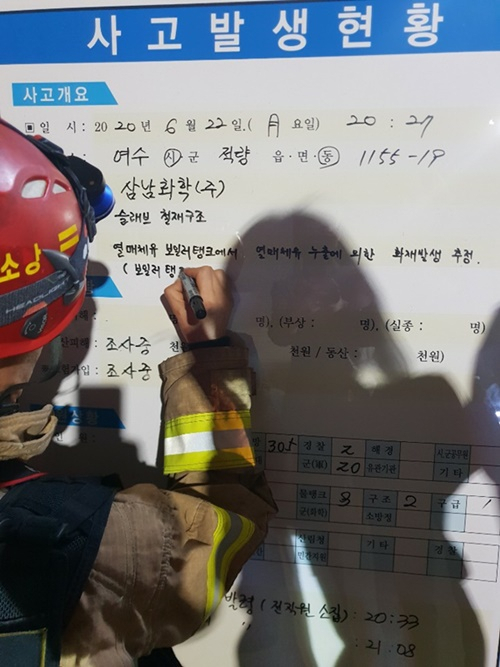 사고발생현황
사고개요
▣ 일 시: 2020년 6월 22일.(月요일) 20 : 27
여수 시 군 적량 읍·면·동 1155-19
삼남화학(주)
슬래브 철재구조
열매체유 보일러탱크에서 열매체유 누출에 의한 화재발생 추정.
(보일러 탱
명). (부상 : 명). (실종 : 명)
조사중 천원 / 동산 : 천원)
조사중
305 경찰 2 해경 시군공무원
20 유관기관 기타
물탱크 8 구조 2 구급 1
군(화학) 소방정
산림청 기타 경찰
민간지원
발령 (전직원 소집) : 20:33
" : 21:08
소방
HEADLIGHT